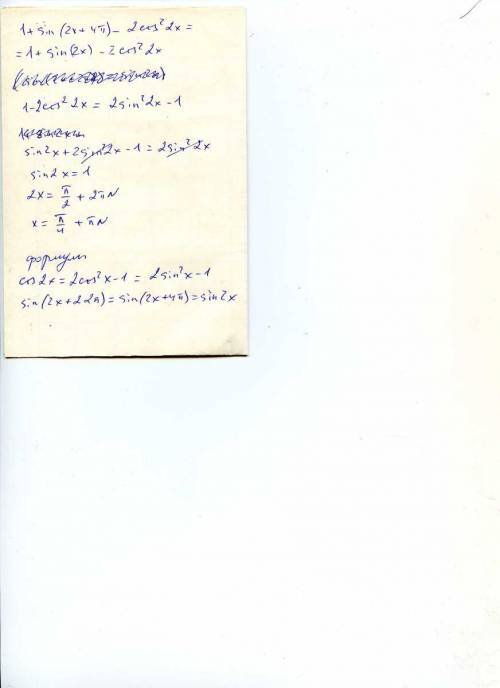 1 + sin (2x + 4π) − 2cos² 2x =
= 1 + sin(2x) − 2cos² 2x
1 − 2cos² 2x = 2sin² 2x − 1
sin2x + 2sin² 2x − 1 = 2sin² 2x
sin 2x = 1
2x = π/2 + 2πN
x = π/4 + πN
формулы
cos 2x = 2cos² x − 1 = 2sin² x − 1
sin(2x + 2 2π) = sin(2x + 4π) = sin 2x